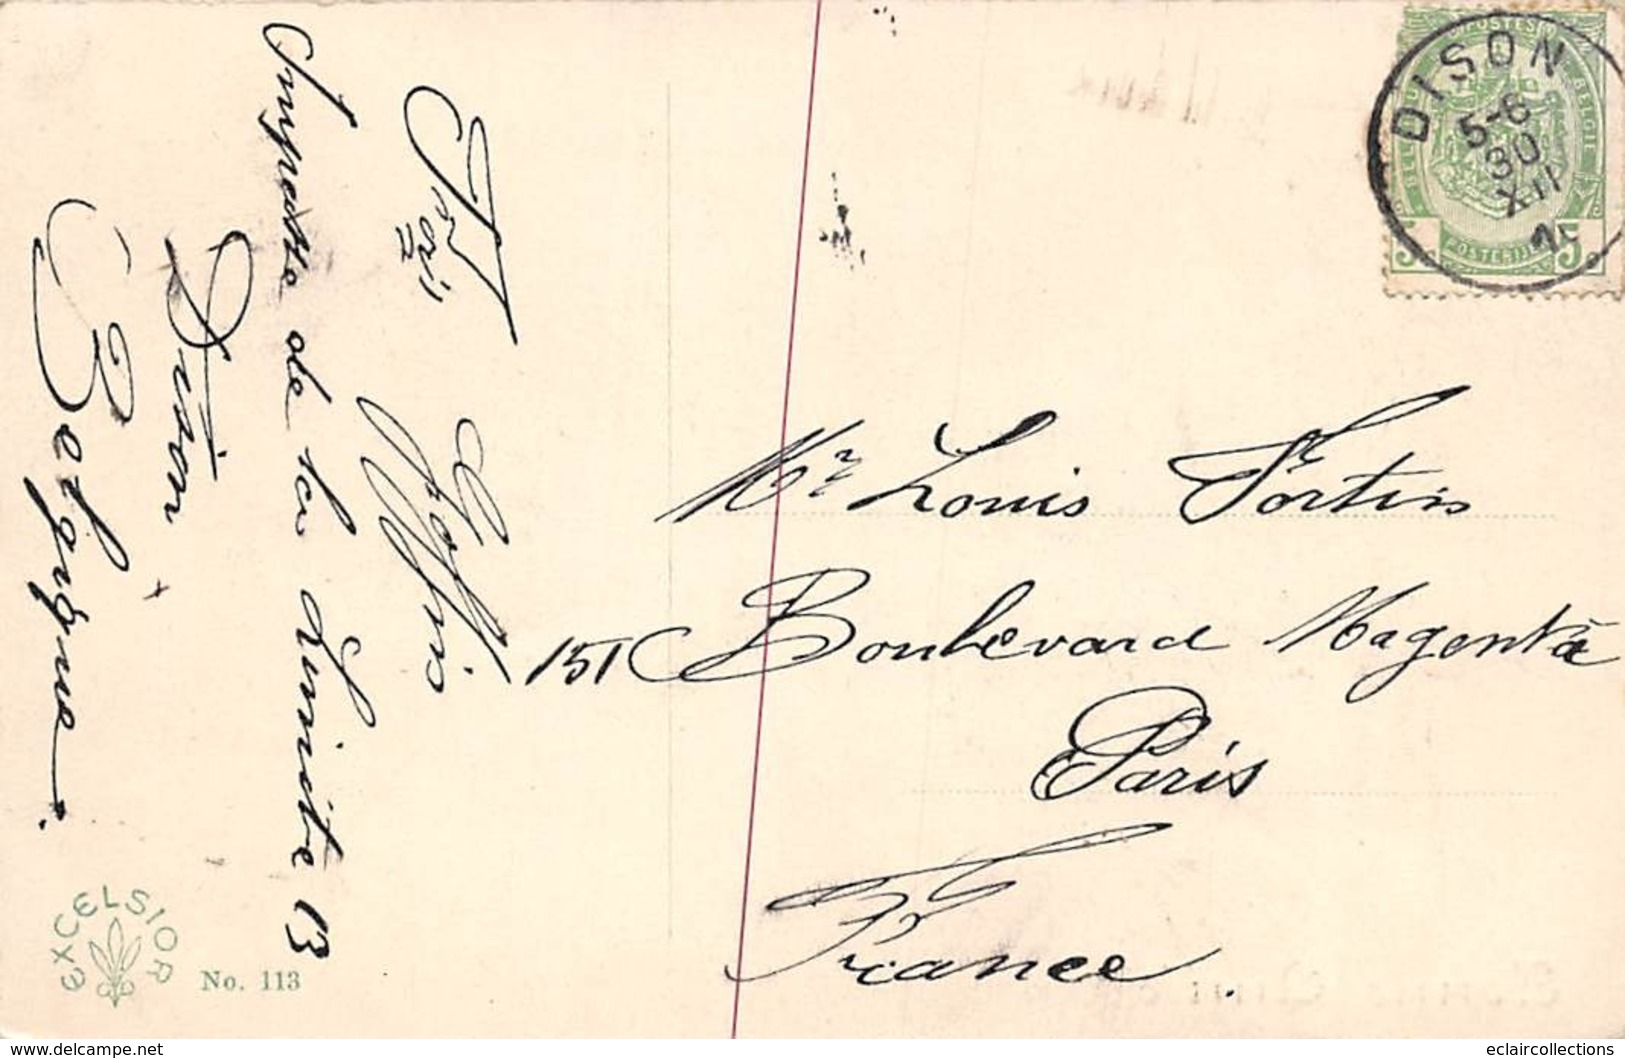 Impasse de la Limite 13
Dison
Belgique.
Mr Louis Fortin
151 Boulevard Magenta
Paris
France.
DISON
5-6
30
XII
BELGIQUE POSTES BELGIE
POSTERIJEN
5 5
EXCELSIOR
No. 113
www.delcampe.net
eclaircollections